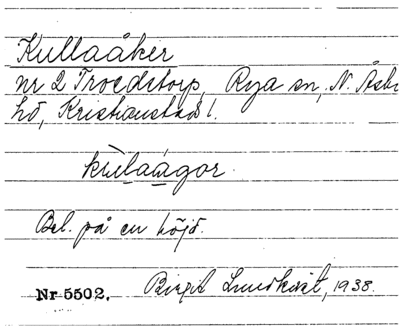 Kullaåker
nr 2 Troedstorp, Rya sn, N. Åsbo
hd, Kristianstads l.
kùlaågor
Bel. på en höjd.
Nr 5502. Birgit Lundkvist, 1938.